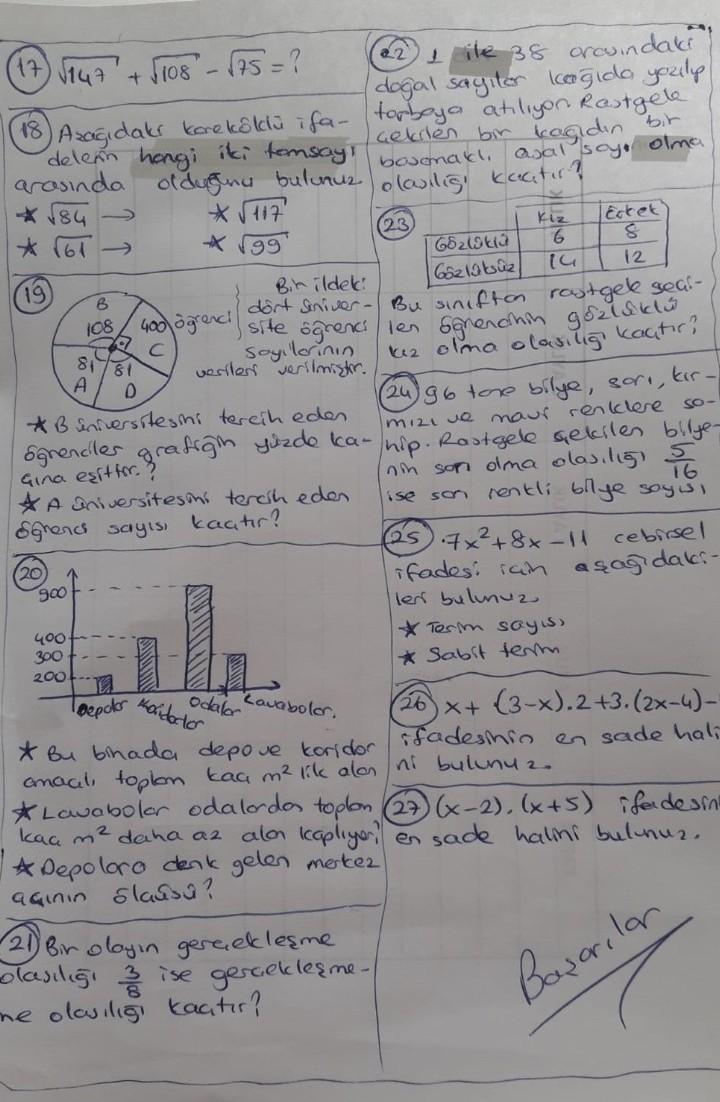 17 √147 + √108 - √75 = ?
18 Aşağıdaki kareköklü ifa-
delerin hangi iki tamsayı
arasında olduğunu bulunuz
* √84 → * √117
* √61 → * √99
19 Bir ildeki
dört üniver-
site öğrenci
sayılarının
verileri verilmiştir.
B
108 400 öğrenci
C
81 81
A D
* B üniversitesini tercih eden
öğrenciler grafiğin yüzde ka-
çına eşittir.?
* A üniversitesini tercih eden
öğrenci sayısı kaçtır?
20
900
400
300
200
Depolar Koridorlar Odalar Lavabolar.
* Bu binada depo ve koridor
amaçlı toplam kaç m² lik alan
* Lavabolar odalardan toplam
kaç m² daha az alan kaplıyor?
* Depolara denk gelen merkez
açının ölçüsü?
21 Bir olayın gerçekleşme
olasılığı 3/8 ise gerçekleşme-
me olasılığı kaçtır?
22 1 ile 38 arasındaki
doğal sayılar kağıda yazılıp
torbaya atılıyor. Rastgele
çekilen bir kağıdın bir
basamaklı asal sayı olma
olasılığı kaçtır?
23 Kız Erkek
Gözlüklü 6 8
Gözlüksüz 14 12
Bu sınıftan rastgele seçi-
len öğrencinin gözlüklü
kız olma olasılığı kaçtır?
24 96 tane bilye, sarı, kır-
mızı ve mavi renklere sa-
hip. Rastgele çekilen bilye-
nin sarı olma olasılığı 5/16
ise sarı renkli bilye sayısı
25 .7x²+8x-11 cebirsel
ifadesi için aşağıdaki-
leri bulunuz
* Terim sayısı
* Sabit terim
26 x+ (3-x).2+3.(2x-4)-
ifadesinin en sade hali
ni bulunuz.
27 (x-2).(x+5) ifadesin
en sade halini bulunuz.
Başarılar